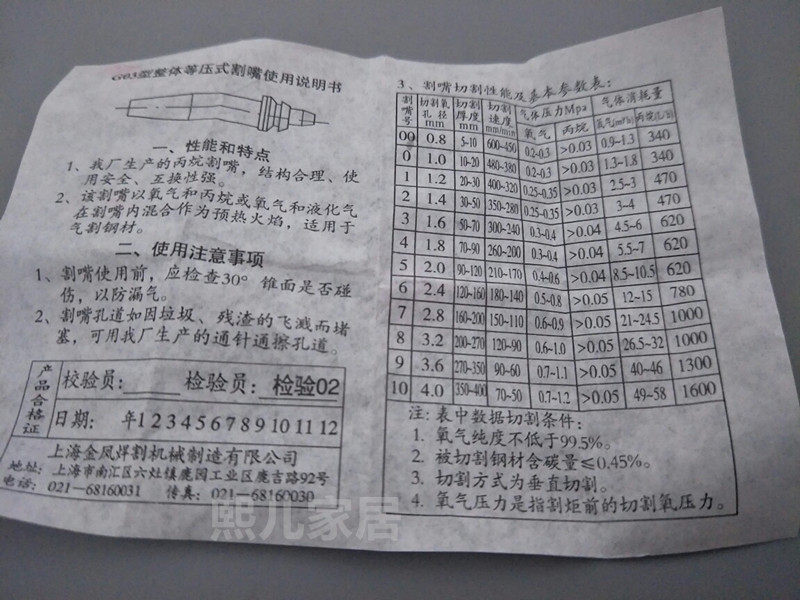 G03型整体等压式割嘴使用说明书
一、性能和特点
1、我厂生产的丙烷割嘴，结构合理、使
用安全、互换性强。
2、该割嘴以氧气和丙烷或氧气和液化气
在割嘴内混合作为预热火焰，适用于
气割钢材。
二、使用注意事项
1、割嘴使用前，应检查30°锥面是否碰
伤，以防漏气。
2、割嘴孔道如因垃圾、残渣的飞溅而堵
塞，可用我厂生产的通针通擦孔道。
产品合格证
校验员: 检验员: 检验02
日期: 年1 2 3 4 5 6 7 8 9 10 11 12
上海金凤焊割机械制造有限公司
地址: 上海市南汇区六灶镇鹿园工业区鹿吉路92号
电话: 021—68160031 传真: 021—68160030
3、割嘴切割性能及基本参数表:
割嘴号 切割氧孔径mm 切割厚度mm 切割速度mm/min 气体压力Mpa 气体消耗量
氧气 丙烷 氧气(m³/h) 丙烷(L/h)
00 0.8 5-10 600~450 0.2-0.3 >0.03 0.9~1.3 340
0 1.0 10-20 480~380 0.2-0.3 >0.03 1.3~1.8 340
1 1.2 20-30 400~320 0.25-0.35 >0.03 2.5~3 470
2 1.4 30-50 350~280 0.25-0.35 >0.03 3~4 470
3 1.6 50-70 300~240 0.3-0.4 >0.04 4.5~6 620
4 1.8 70-90 260~200 0.3~0.4 >0.04 5.5~7 620
5 2.0 90~120 210~170 0.4~0.6 >0.04 8.5~10.5 620
6 2.4 120~160 180~140 0.5~0.8 >0.05 12~15 780
7 2.8 160~200 150~110 0.6~0.9 >0.05 21~24.5 1000
8 3.2 200~270 120~90 0.6~1.0 >0.05 26.5~32 1000
9 3.6 270~350 90~60 0.7~1.1 >0.05 40~46 1300
10 4.0 350~400 70~50 0.7~1.2 >0.05 49~58 1600
注: 表中数据切割条件:
1. 氧气纯度不低于99.5%。
2. 被切割钢材含碳量≤0.45%。
3. 切割方式为垂直切割。
4. 氧气压力是指割炬前的切割氧压力。
熙儿家居